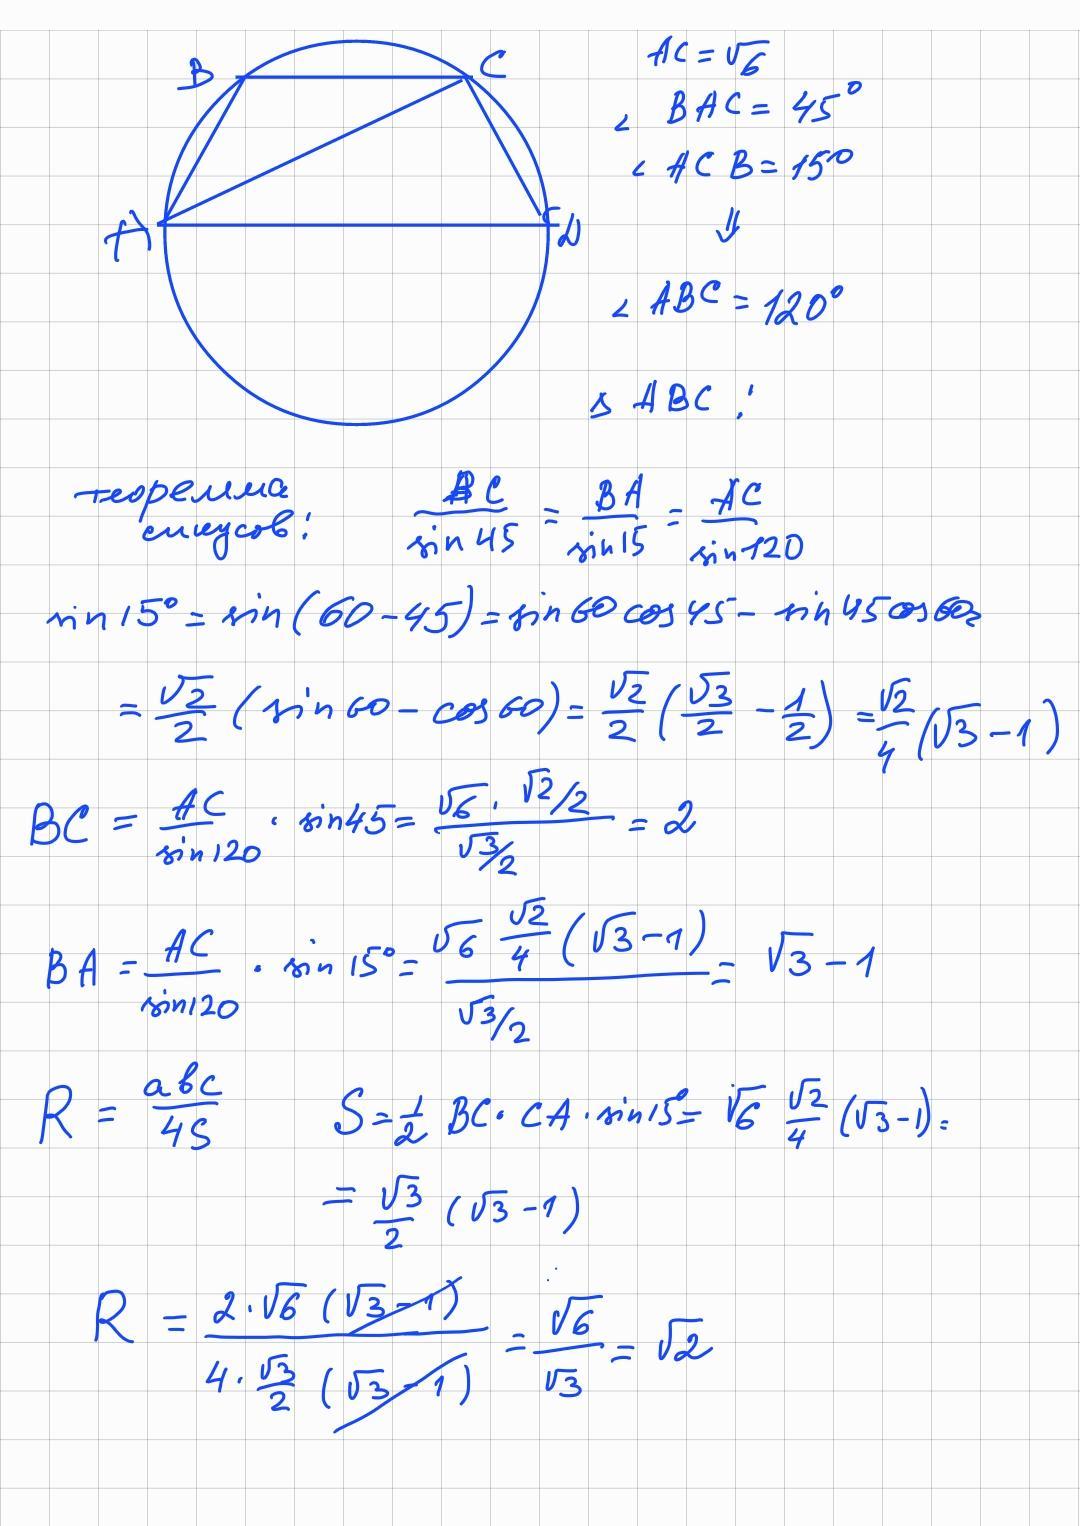 B C
A D
AC = √6
∠ BAC = 45°
∠ ACB = 15°
⇓
∠ ABC = 120°
△ ABC :
теоремма
синусов:
BC/sin 45 = BA/sin 15 = AC/sin 120
sin 15° = sin (60 - 45) = sin 60 cos 45 - sin 45 cos 60 =
= √2/2 (sin 60 - cos 60) = √2/2 (√3/2 - 1/2) = √2/4 (√3 - 1)
BC = AC/sin 120 · sin 45 = (√6 · √2/2)/(√3/2) = 2
BA = AC/sin 120 · sin 15° = (√6 √2/4 (√3 - 1))/(√3/2) = √3 - 1
R = abc/4S S = 1/2 BC · CA · sin 15° = √6 √2/4 (√3 - 1) =
= √3/2 (√3 - 1)
R = (2 · √6 (√3 - 1))/(4 · √3/2 (√3 - 1)) = √6/√3 = √2